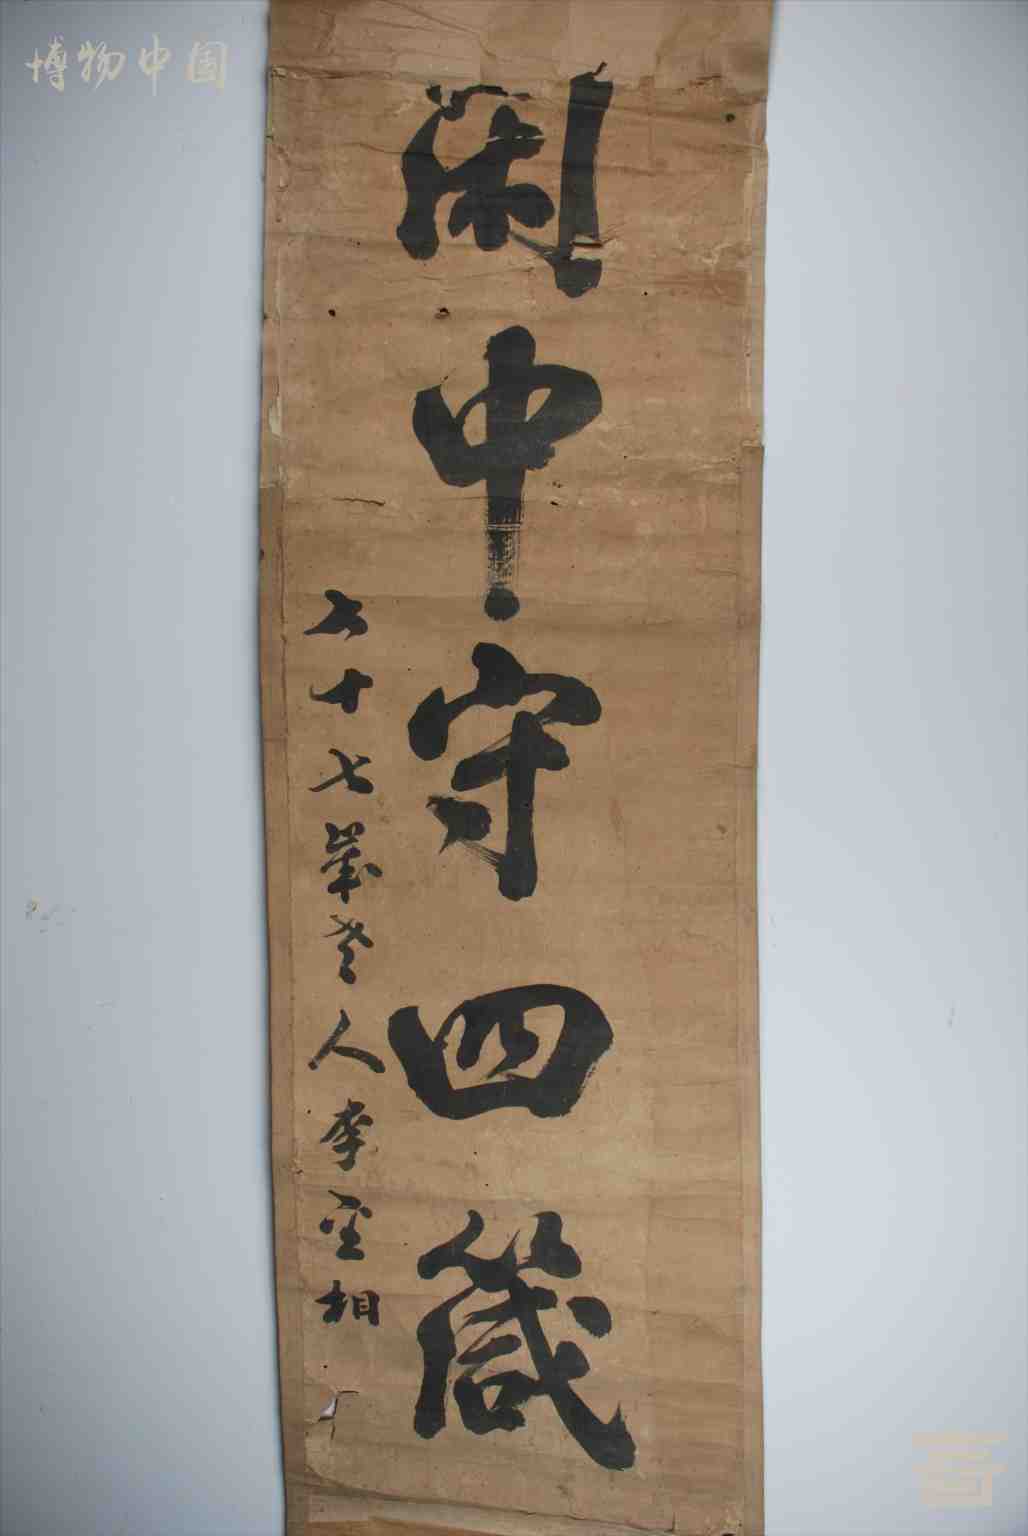 博物中国
閑中守四箴
六十七歲老人李空相